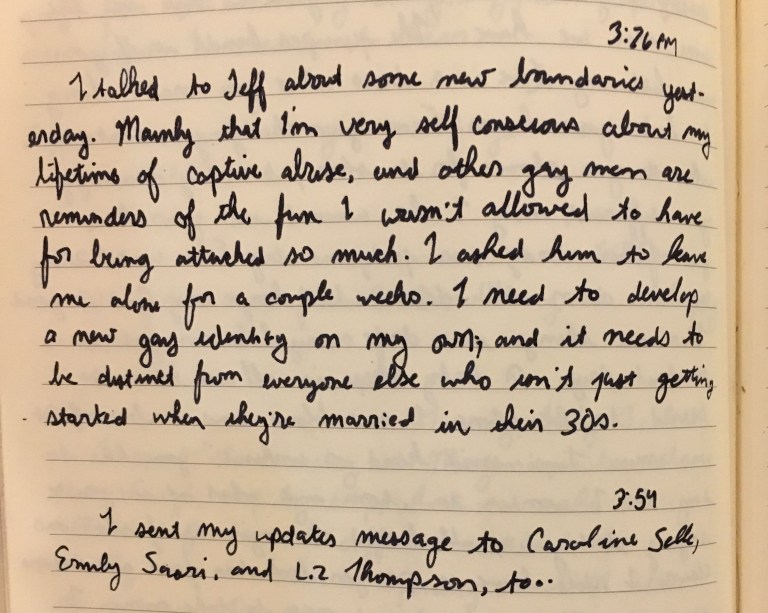 3:26 PM
I talked to Jeff about some new boundaries yest-
erday. Mainly that I'm very self conscious about my
lifetime of captive abuse, and other gay men are
reminders of the fun I wasn't allowed to have
for being attached so much. I asked him to leave
me alone for a couple weeks. I need to develop
a new gay identity on my own, and it needs to
be distinct from everyone else who isn't just getting
started when they're married in their 30s.
3:54
I sent my updates message to Caroline Selk,
Emily Saari, and Liz Thompson, to..